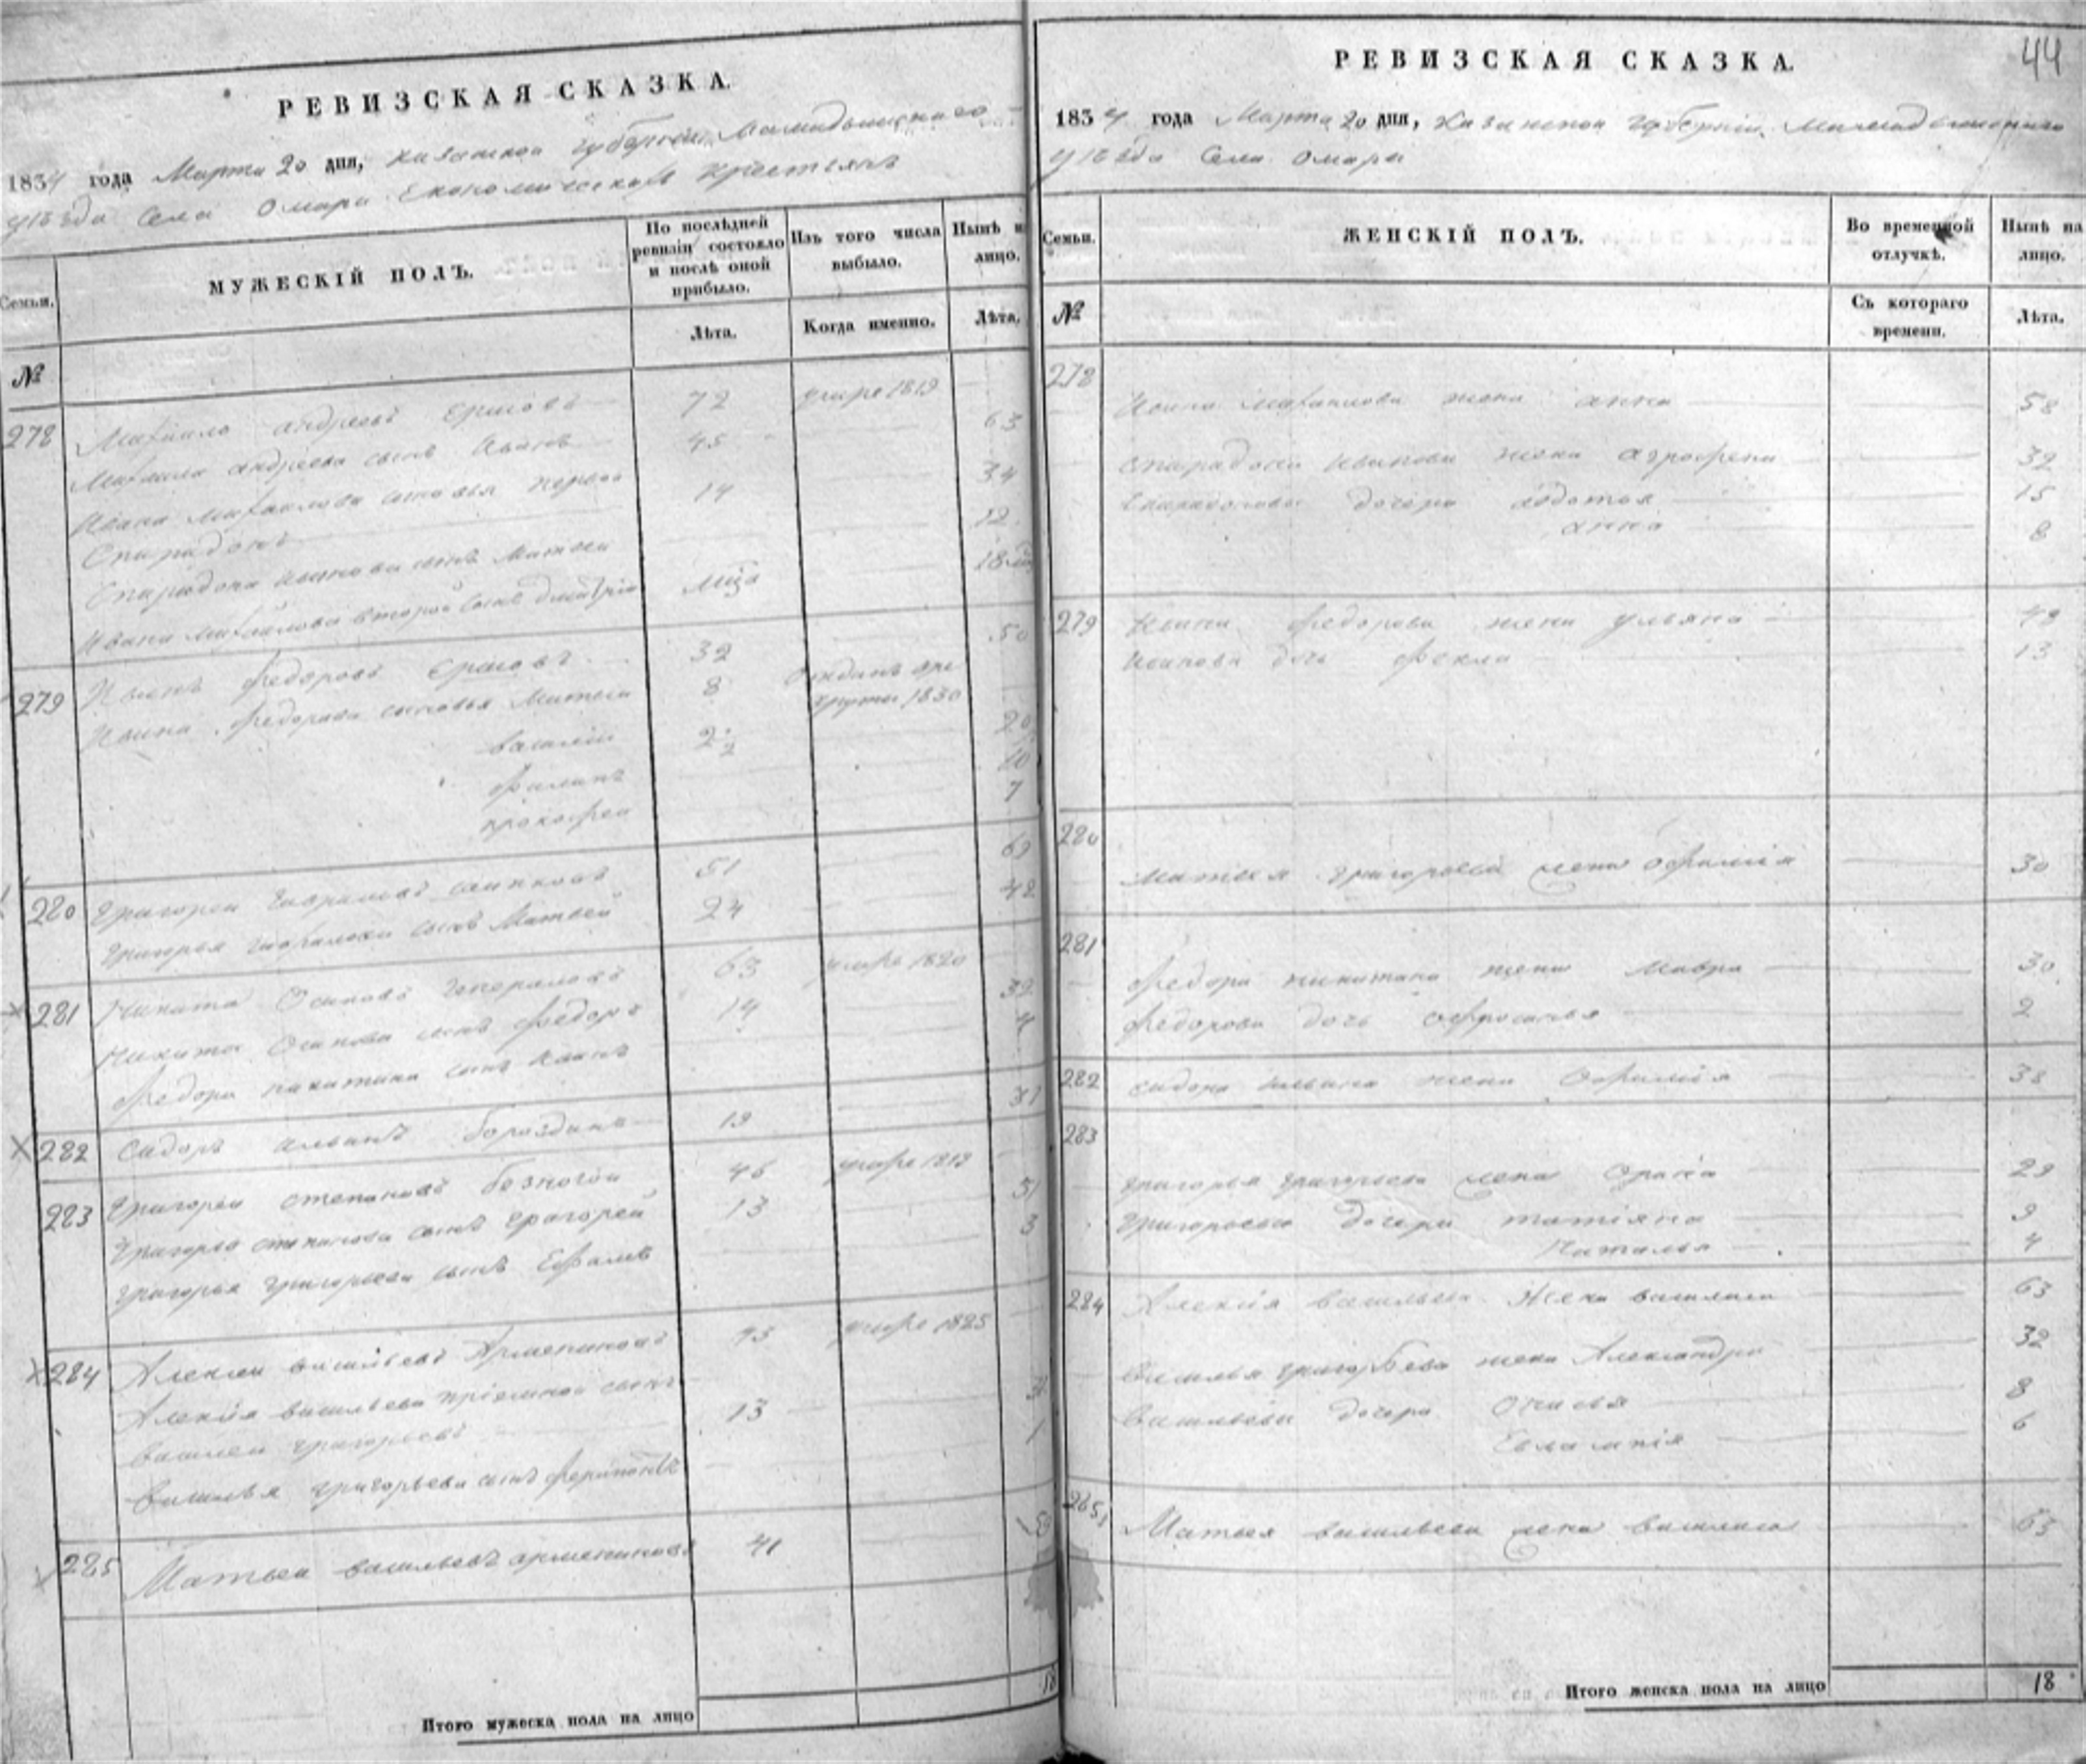 РЕВИЗСКАЯ СКАЗКА.
1834 года Марта 20 дня, Казанской губернии Мамадышскаго
уѣзда Села Омары Економическихъ крестьянъ
Семьи.
МУЖЕСКІЙ ПОЛЪ.
По послѣдней ревизіи состояло и послѣ оной прибыло.
Изъ того числа выбыло.
Нынѣ на лицо.
№
Лѣта.
Когда именно.
Лѣта.
278 Михаило андреевъ 72 умре 1819
Михаила андреева сынъ Иванъ 45 63
Ивана Михаилова сыновья первой
Спиридонъ 14 34
Спиридона иванова сынъ Матвей 12
Ивана михайлова второй сынъ дмитрій 18
279 Иванъ федоровъ 32 50
Ивана федорова сыновья Матвеи 8 Отданъ в ре
круты 1830
василіи 2 1/2 20
филипъ 10
прокофеи 7
280 Григореи гавриловъ 51 69
Григорья гаврилова сынъ Матвей 24 42
281 Никита Осиповъ 63 умре 1820
Никиты Осипова сынъ федоръ 14 32
федора никитина сынъ иванъ 4
282 Сидоръ ильинъ бороздинъ 19 37
283 Григореи степановъ безногои 46 умре 1819
Григорья степанова сынъ Григорей 13 31
Григорья Григорьева сынъ 3
284 Алексеи васильевъ Арметиновъ умре 1825
Алексія васильева пріемной сынъ
василеи григорьевъ 13 31
Василья григорьева сынъ ферапонтъ 1
285 Матвеи васильевъ 41
Итого мужеска пола на лицо 18
44
РЕВИЗСКАЯ СКАЗКА.
1834 года Марта 20 дня, Казанской губерніи Мамадышскаго
уѣзда Села Омары
Семьи.
ЖЕНСКІЙ ПОЛЪ.
Во временной отлучкѣ.
Нынѣ на лицо.
№
Съ котораго времени.
Лѣта.
278
Ивана михаилова жена анна 58
Спиридона иванова жена агрофена 32
Спиридоновы дочери авдотья 15
анна 8
279 Ивана федорова жена ульяна 49
Иванова дочь фекла 13
280
Матвея григорьева жена офимія 30
281
федора никитина жена Мавра 30
федорова дочь офросинья 2
282 сидора ильина жена Офимія 38
283
Григорья григорьева жена 29
Григорьевы дочери татіяна 9
Наталья 4
284 Алексія васильева жена василиса 63
Василья григорьева жена Александра 32
Васильевы дочери 8
Евлампія 6
285
Матвея васильева жена василиса 63
Итого женска пола на лицо 18